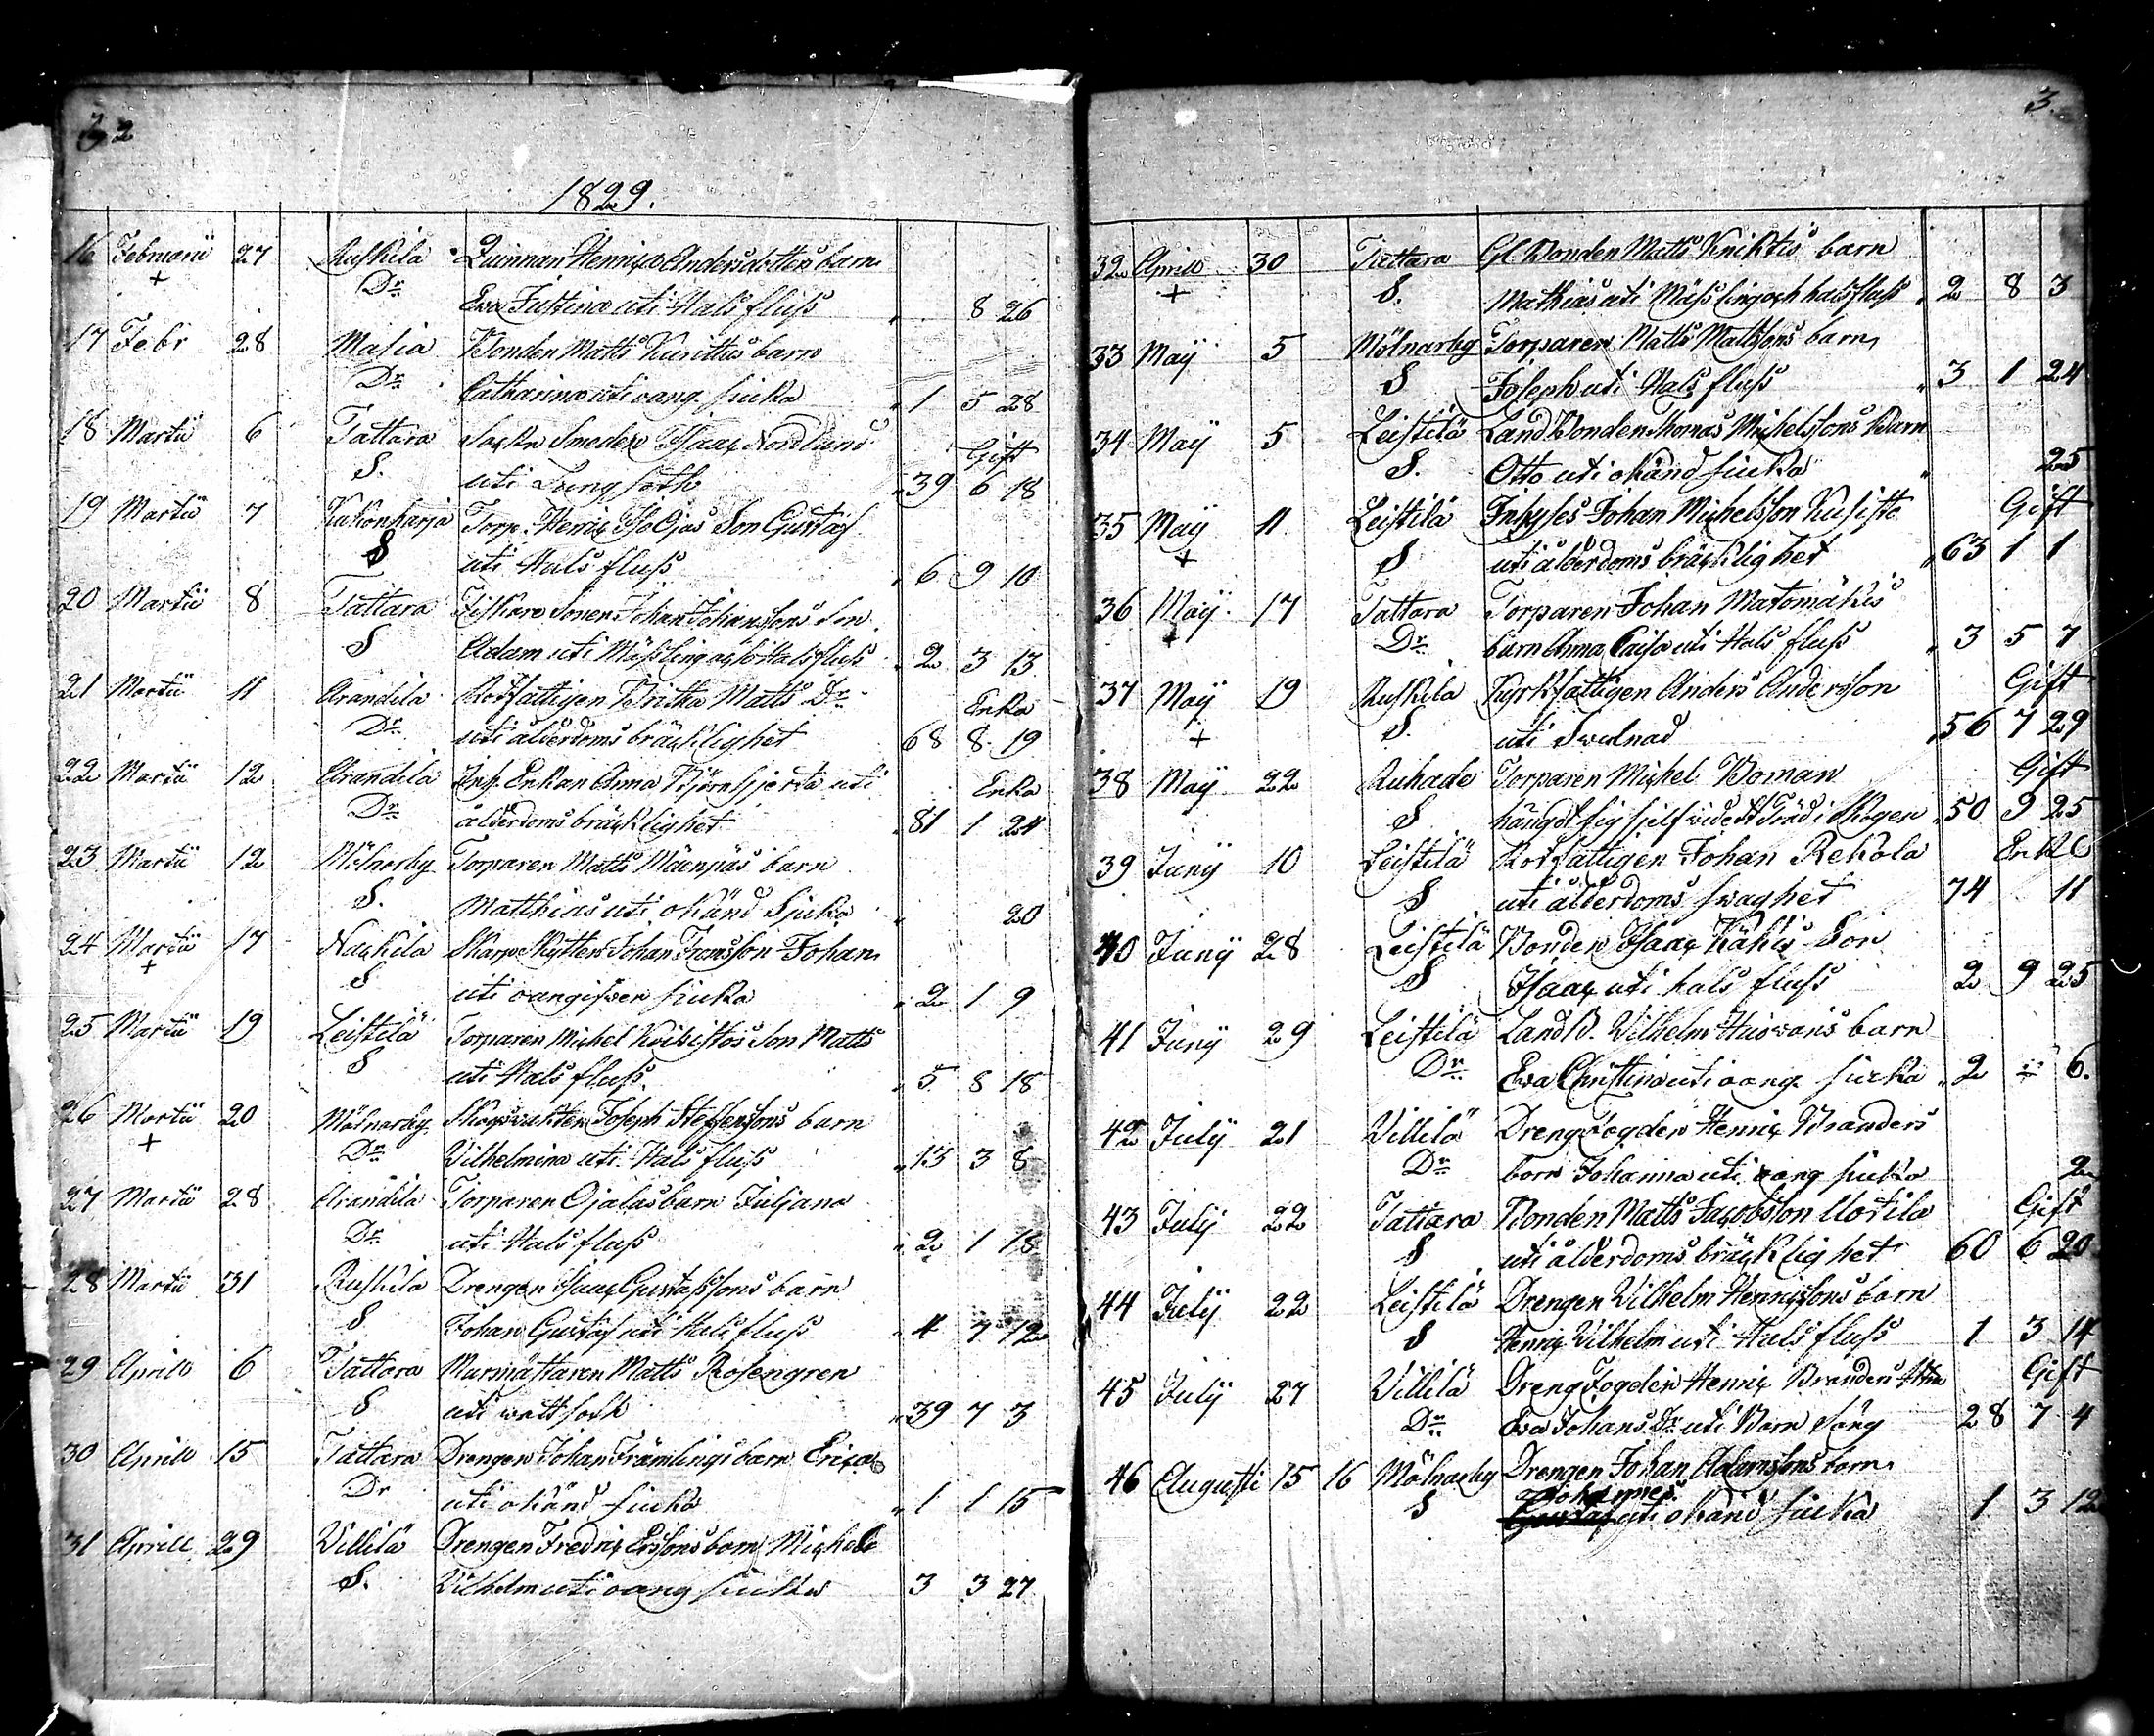 2
1829.
16 Februarii 27 Ruskila Quinnan Henrica Andersdotters barn
+ Dr Eva Justina uti Hals fluss " 8 26
17 Febr 28 Masia Bonden Matts Kurittus barn
Dr Catharina uti oang siuka " 1 5 28
18 Martii 6 Tattara Sockn Smeden Isaac Nordlund Gift
S. uti Lung soth " 39 6 18
19 Martii 7 Kakonharja Torp. Henric Iso Ojas Son Gustaf
S uti Hals fluss " 6 9 10
20 Martii 8 Tattara Johan Johanssons Son
S Adam uti Mässling och Halsfluss " 2 3 13
21 Martii 11 Arandila Rotfattigen Britta Matts Dr Enka
Dr uti ålderdoms bräcklighet 68 8 19
22 Martii 12 Arandila Inh. Enkan Anna Björnhjerta uti Enka
Dr ålderdoms bräcklighet " 81 1 24
23 Martii 12 Mölnarby Torparen Matts Mäenpäs barn
S. Matthias uti okänd Sjuka " 20
24 Martii 17 Nackila Skarp Skytten Johan Fromsson Johan
+ S uti oangifven siuka " 2 1 9
25 Martii 19 Leistilä Torparen Michel Koivistos Son Matts
S uti Hals fluss " 5 8 18
26 Martii 20 Mölnarby Skogswakten Joseph Steffenssons barn
+ Dr Vilhelmina uti Hals fluss " 13 3 8
27 Martii 28 Arandila Torparen Ojalas barn Juljana
Dr uti Hals fluss " 2 1 18
28 Martii 31 Ruskila Drengen Isaac Gustafssons barn
S Johan Gustaf uti Hals fluss " 4 7 12
29 Aprill 6 Tattara Murmästaren Matts Rosengren
S uti watt soth " 39 7 3
30 Aprill 15 Tattara Drengen Johan Främlings barn Erica
Dr uti okänd siuka " 1 1 15
31 Aprill 29 Villilä Drengen Fredric Erssons barn Michel
S. Vilhelm uti oang siuka 3 3 27
3.
32 Aprill 30 Tattara Gl. Bonden Matts Knihtis barn
+ S. Mathias uti Mässling och halsfluss " 2 8 3
33 Maÿ 5 Mölnarby Torparen Matts Mattssons barn
S Joseph uti Hals fluss " 3 1 24
34 Maÿ 5 Leistilä Land Bonden Thomas Michelssons Barn
S. Otto uti okänd siuka " 25
35 Maÿ 11 Leistilä Inhyses Johan Michelsson Kusisto Gift
+ S uti ålderdoms bräcklighet " 63 1 1
36 Maÿ 17 Tattara Torparen Johan Matomäkis
+ Dr barn Anna Caisa uti Hals fluss " 3 5 7
37 Maÿ 19 Ruskila Kyrkfattigen Anders Andersson Gift
+ S. uti Swulnad " 56 7 29
38 Maÿ 22 Ruhade Torparen Michel Boman Gift
S hängdt sig sjelf wid ett Träd i Skogen " 50 9 25
39 Junÿ 10 Leistilä Rotfattigen Johan Rekola Enkl
S uti ålderdoms swaghet 74 11
40 Junÿ 28 Leistilä Bonden Isaac Kähis Son
S Isaac uti hals fluss 2 9 25
41 Junÿ 29 Leistilä Land B. Vilhelm barn
Dr Eva Christina uti oang siuka " 2 " 6.
42 Julÿ 21 Villilä Dreng Fogden Henric Branders
Dr barn Johanna uti oang siuka 2
43 Julÿ 22 Tattara Bonden Matts Jacobsson Uotila Gift
S uti ålderdoms bräcklighet 60 6 20
44 Julÿ 22 Leistilä Drengen Vilhelm Henricssons barn
S Henric Vilhelm uti Hals fluss 1 3 14
45 Julÿ 27 Villilä Dreng Fogden Henric Branders Hu Gift
Dr Eva Johans Dr uti Barn Säng 28 7 4
46 Augusti 15 16 Mölnarby Drengen Johan Adamssons barn
Johannes
S Gustaf uti okänd siuka 1 3 12